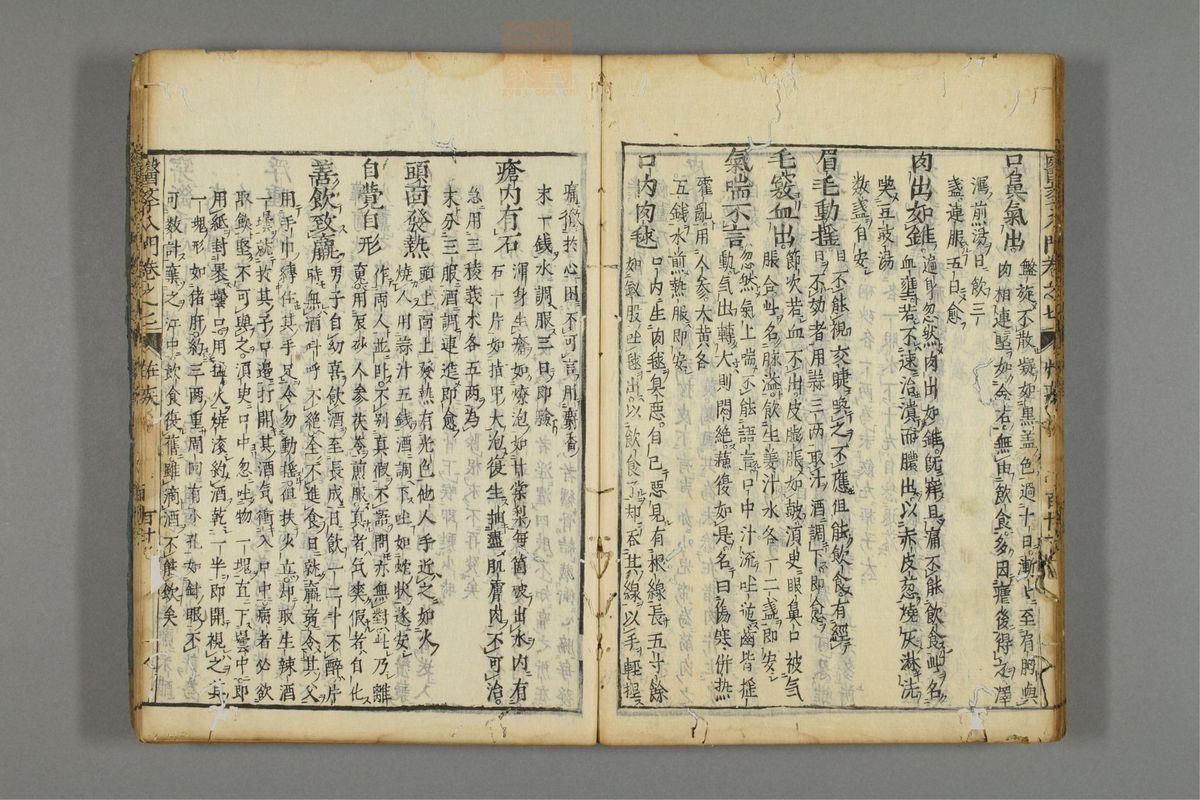 口鼻氣出 盤旋不散凝如黑蓋色過十日漸漸至有肩與
肉相連堅如金石無由飲食多因瘧後得之澤
瀉煎湯日飲三
盞連服五日愈
肉出如錐 遍身忽然肉出如錐既痒且痛不能飲食此名
血壅若不速治潰而膿出以赤皮葱燒灰淋洗
喫豆豉湯
數盞自安
眉毛動搖 目不能視交睫喚之不應但能飲食有經
日不効者用蒜三兩取汁酒調下即愈
毛竅血出 節次若血不出皮膨脹如鼓須臾眼鼻口被气
脹合此名脉溢飲生姜汁水各一二盞即安
氣喘不言 忽然氣上喘不能語言口中汁流吐逆齒皆搖
動气出轉大則悶絶蘓復如是名曰傷寒併热
霍亂用人參大黃各
五錢水煎熱服即安
口内肉毬 口内生肉毬臭惡自己惡見有根線長五寸餘
如釵股吐毬出以飲食了却吞其線以手輕捏
痛徹於心因不可言用麝香
末一錢水調服三日即驗
瘡内有石 渾身生瘡如燎泡如甘棠梨每箇破出水内有
石一片如指甲大泡復生抽盡肌膚肉不可治
急用三稜莪朮各五兩為
末分三服酒調連進即愈
頭面發熱 頭上面上發熱有光色他人手近之如火
燒人用蒜汁五錢酒調下吐如蛇狀遂安
自覺自形 作兩人並臥不別真假不語問亦無對此乃離
魂用辰砂人參茯苓煎服真者气爽假者自化
善飲致羸 男子自幼喜飲酒至長成日飲一二升不醉片
時無酒叫呼不絶全不進食日就羸黃令其父
用手巾縛住其手足令勿動搖但扶火立却取生辣酒
一壜就於其子口邊打開其酒气衝入口中病者必欲
取飲堅不可與之須臾口中忽吐物一塊直下壜中即
用紙封裹壜口用猛火燒滾約酒乾一半即開視之其
一塊形如猪肝約三兩重周回有小孔如針眼不
可數計棄之汗中飲食復舊雖滴酒不能飲矣